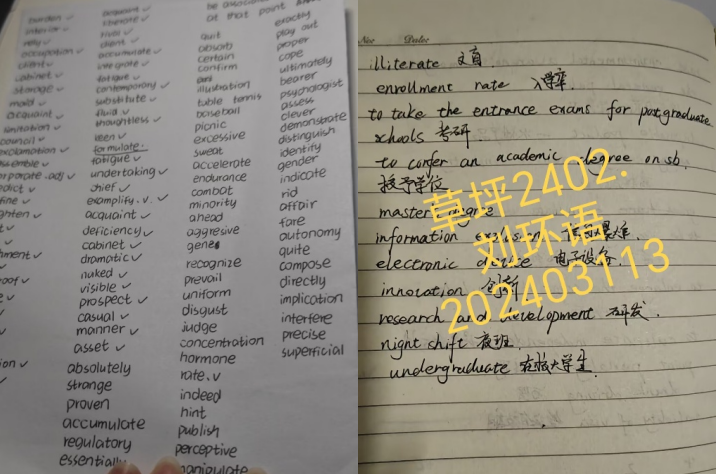 burden ✓
interior ✓
rely ✓
occupation ✓
client ✓
cabinet ✓
storage ✓
maid ✓
acquaint ✓
council ✓
liberate ✓
rival ✓
client ✓
accumulate ✓
integrate ✓
fatigue ✓
contemporary ✓
substitute ✓
fluid ✓
thoughtless ✓
keen ✓
formulate.
fatigue ✓
undertaking ✓
chief ✓
examplify.v. ✓
acquaint ✓
deficiency ✓
cabinet ✓
dramatic ✓
nuked ✓
visible ✓
prospect ✓
casual ✓
manner ✓
asset ✓
absolutely
strange
proven
accumulate
regulatory
essentially
at that point
quit
absorb
certain
confirm
illustration
table tennis
baseball
picnic
excessive
sweat
accelerate
endurance
combat
minority
ahead
aggresive
gene
recognize
prevail
uniform
disgust
judge
concentration
hormone
rate.v
indeed
hint
publish
perceptive
manipulate
exactly
play out
proper
cope
ultimately
bearer
psychologist
assess
clever
demonstrate
distinguish
identity
gender
indicate
rid
affair
fare
autonomy
quite
compose
directly
implication
interfere
precise
superficial
No: Date:
illiterate 文盲
enrollment rate 入学率.
to take the entrance exams for postgraduate
schools 考研.
to confer an academic degree on sb.
授予学位
master degree
information explosion 信息爆炸.
electronic device 电子设备.
innovation 创新
research and development 研发.
night shift 夜班.
undergraduate 在校大学生.
草坪2402.
刘环语
202403113